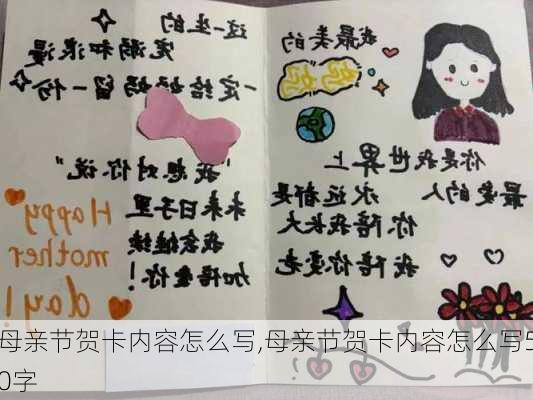 我最美的
妈妈
你是我世界上
最爱的人 永远都是
你陪我长大
我陪你变老
这一生的
宠溺和浪漫
一定给妈妈留一份
"我想对你说"
未来日子里
我会继续
加倍爱你!
Happy
mother
day!
母亲节贺卡内容怎么写,母亲节贺卡内容怎么写5
0字